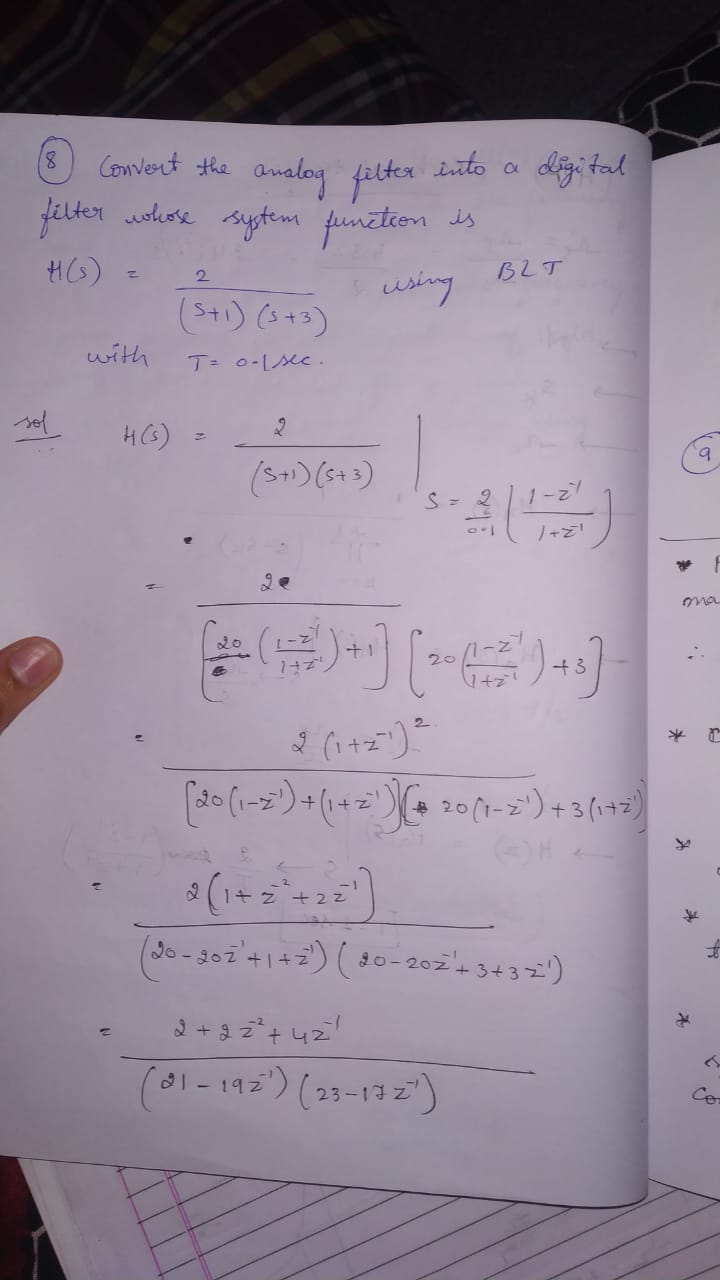 8 Convert the analog filter into a digital
filter whose system function is
H(s) = 2 / (S+1) (s+3) using BLT
with T= 0.1 sec.
sol H(s) = 2 / (S+1)(s+3) | S = 2/0.1 (1-z⁻¹ / 1+z⁻¹)
= 2 / [20 (1-z⁻¹ / 1+z⁻¹) +1] [20 (1-z⁻¹ / 1+z⁻¹) +3]
= 2 (1+z⁻¹)² / [20(1-z⁻¹)+(1+z⁻¹)] [20(1-z⁻¹)+3(1+z⁻¹)
= 2(1+z⁻²+2z⁻¹] / (20-20z⁻¹+1+z⁻¹) (20-20z⁻¹+3+3z⁻¹)
= 2+2z⁻²+4z⁻¹ / (21-19z⁻¹) (23-17z⁻¹)
9
ma
∴